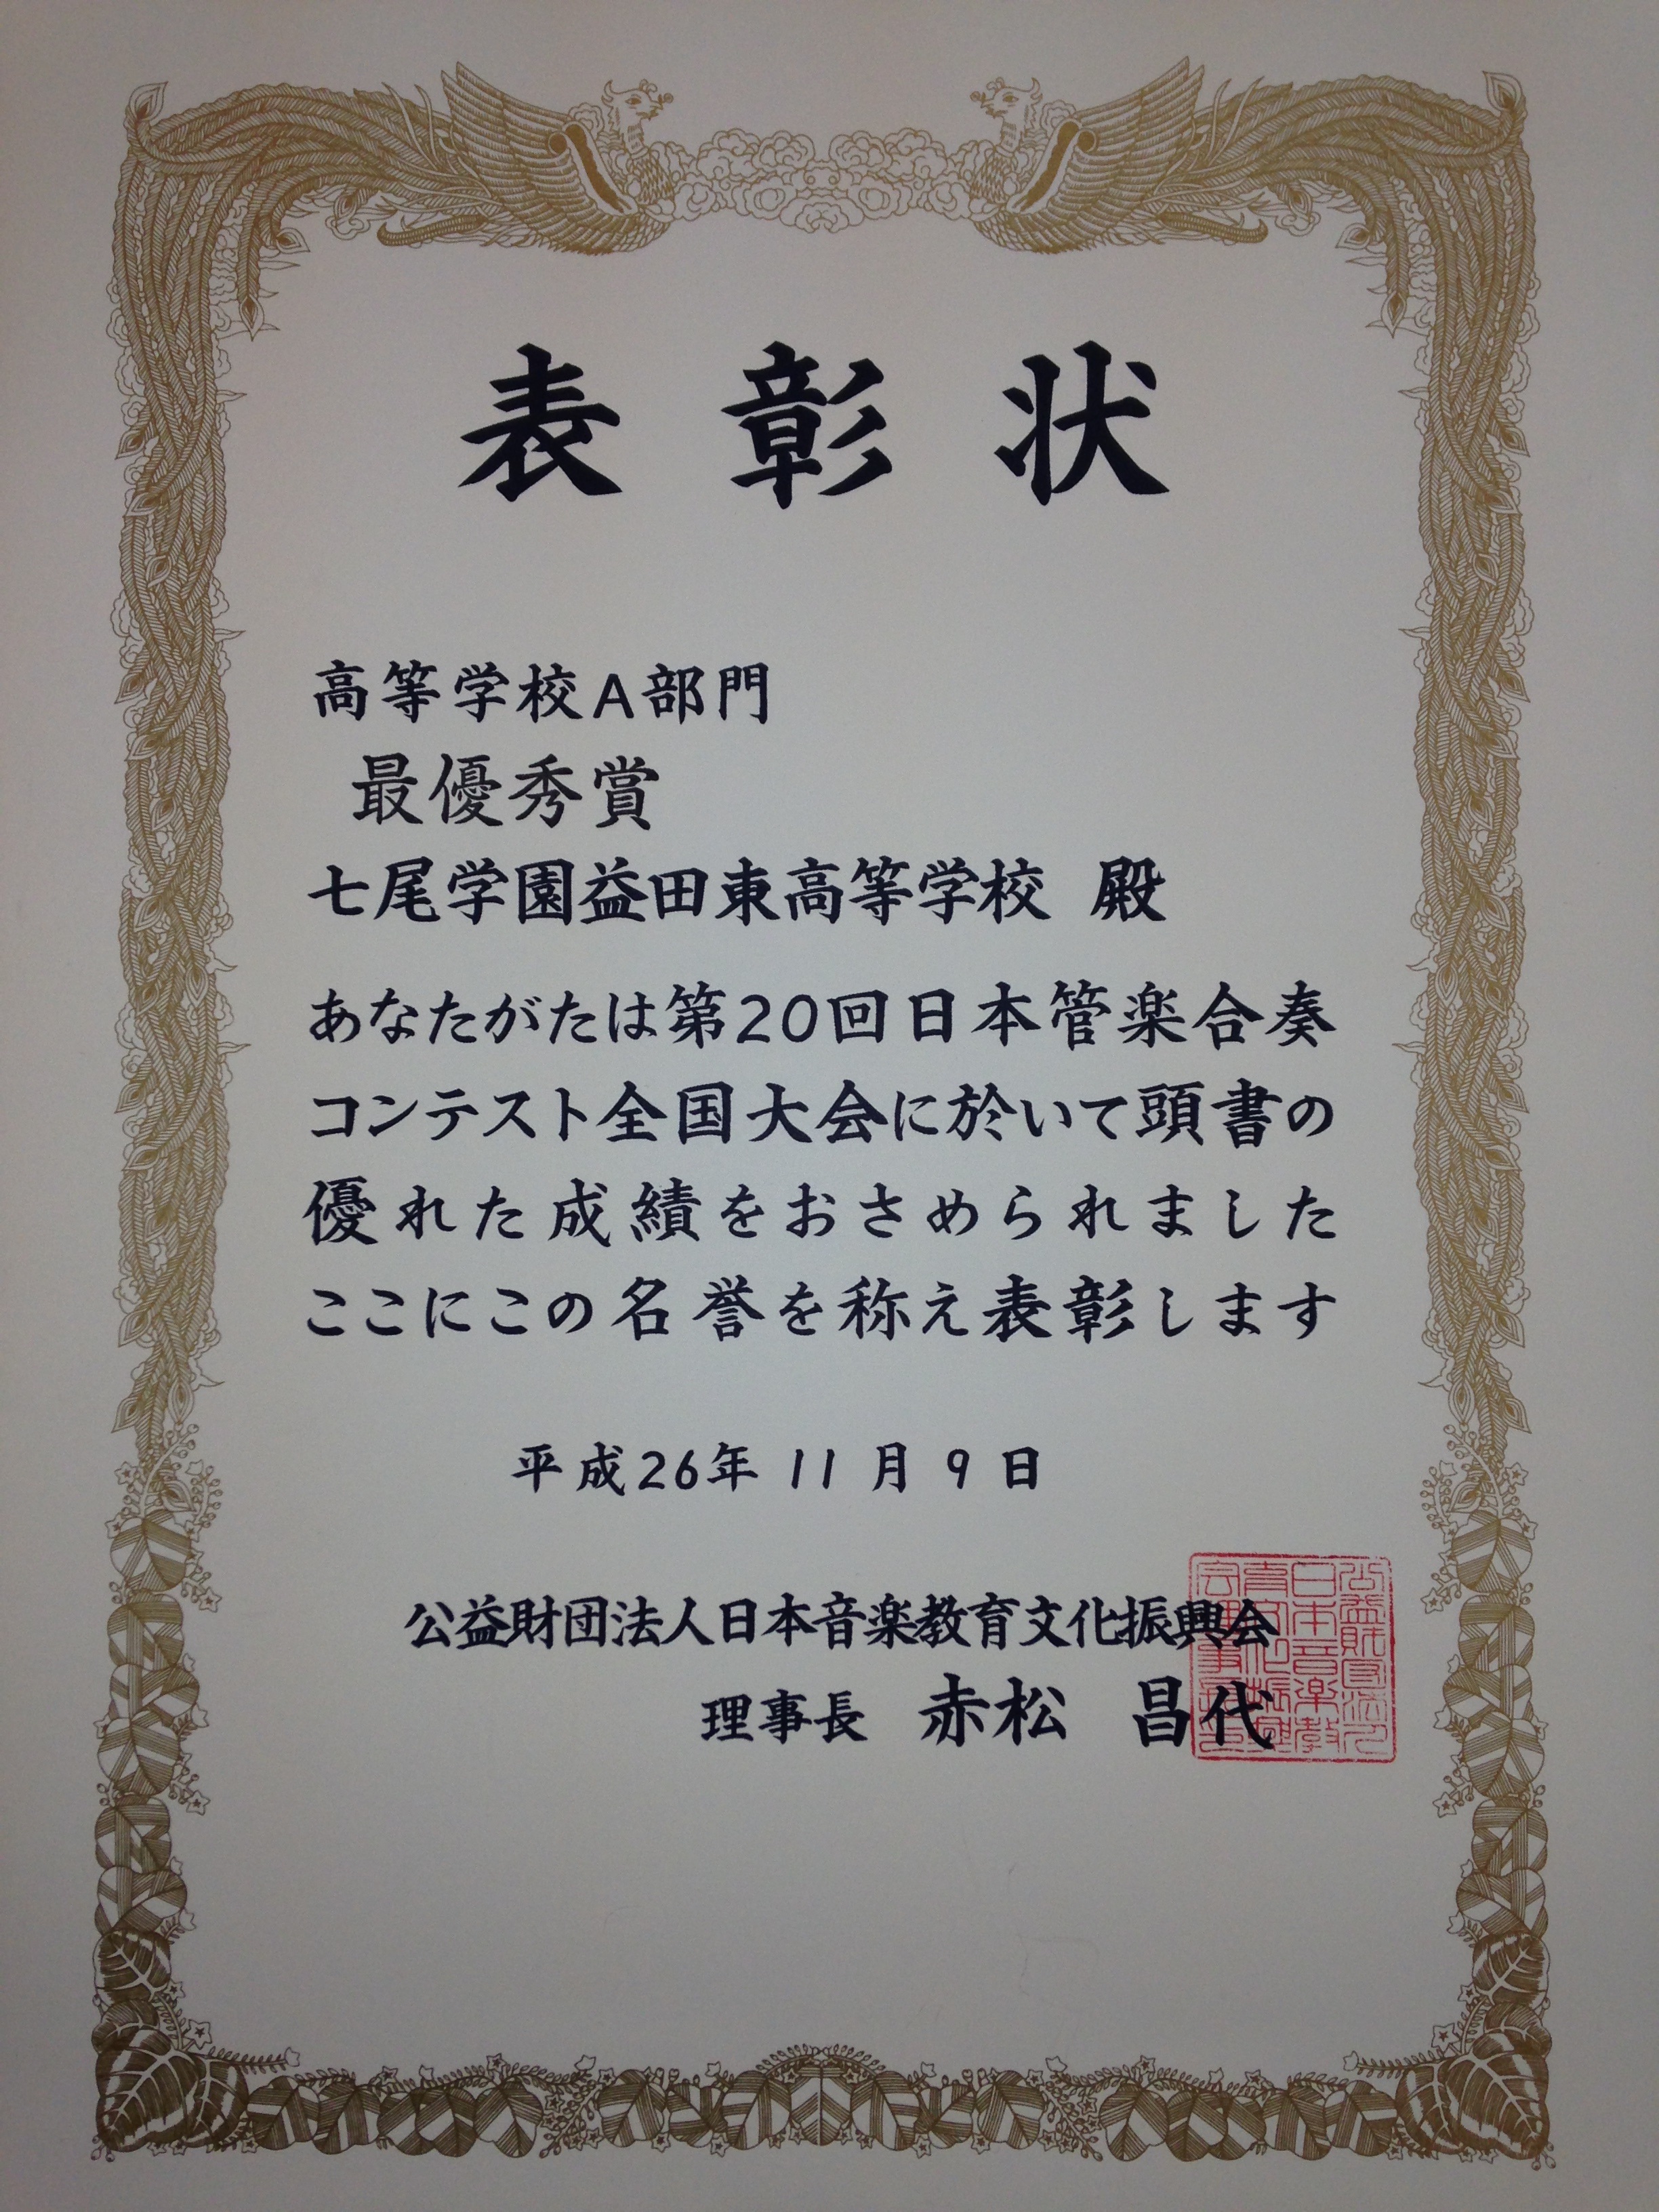 表彰状
高等学校A部門
最優秀賞
七尾学園益田東高等学校 殿
あなたがたは第20回日本管楽合奏
コンテスト全国大会に於いて頭書の
優れた成績をおさめられました
ここにこの名誉を称え表彰します
平成26年 11月 9日
公益財団法人日本音楽教育文化振興会
理事長 赤松 昌代